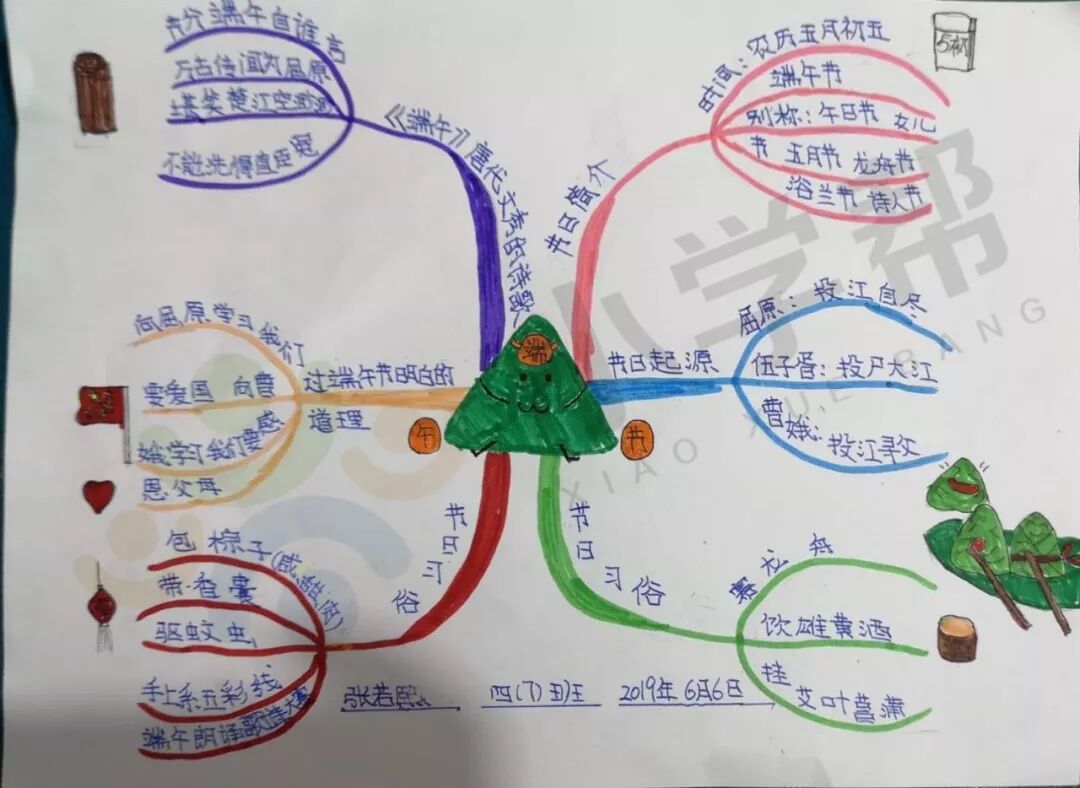 节分端午自谁言
万古传闻为屈原
堪笑楚江空渺渺
不能洗得直臣冤
《端午》唐代文秀的诗歌
节日简介
时间：农历五月初五
端午节
别称：午日节 女儿
节 五月节 龙舟节
浴兰节 诗人节
节日起源
屈原：投江自尽
伍子胥：投尸大江
曹娥：
投江寻父
过端午节明白的
道理
向屈原学习我们
要爱国 向曹
娥学习我们要感
恩父母
端
午
节
节日习俗
包粽子(咸甜
带香囊
驱蚊虫
手上系五彩线
端午朗诵歌诗大赛
节日习俗
赛龙舟
饮雄黄酒
挂
艾叶菖蒲
张若熙
四(7)班
2019年6月6日
小学帮
XIAO XUE BANG